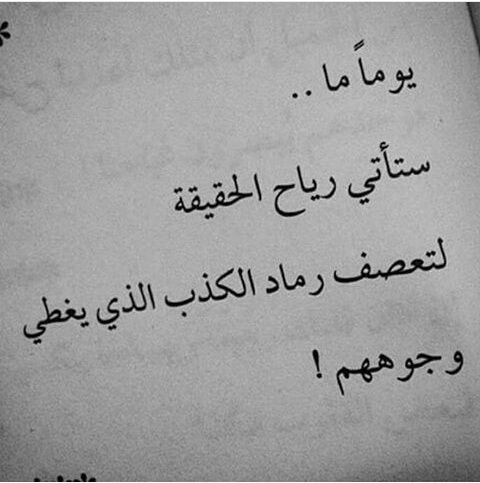 يوماً ما ..
ستأتي رياح الحقيقة
لتعصف رماد الكذب الذي يغطي
وجوههم !